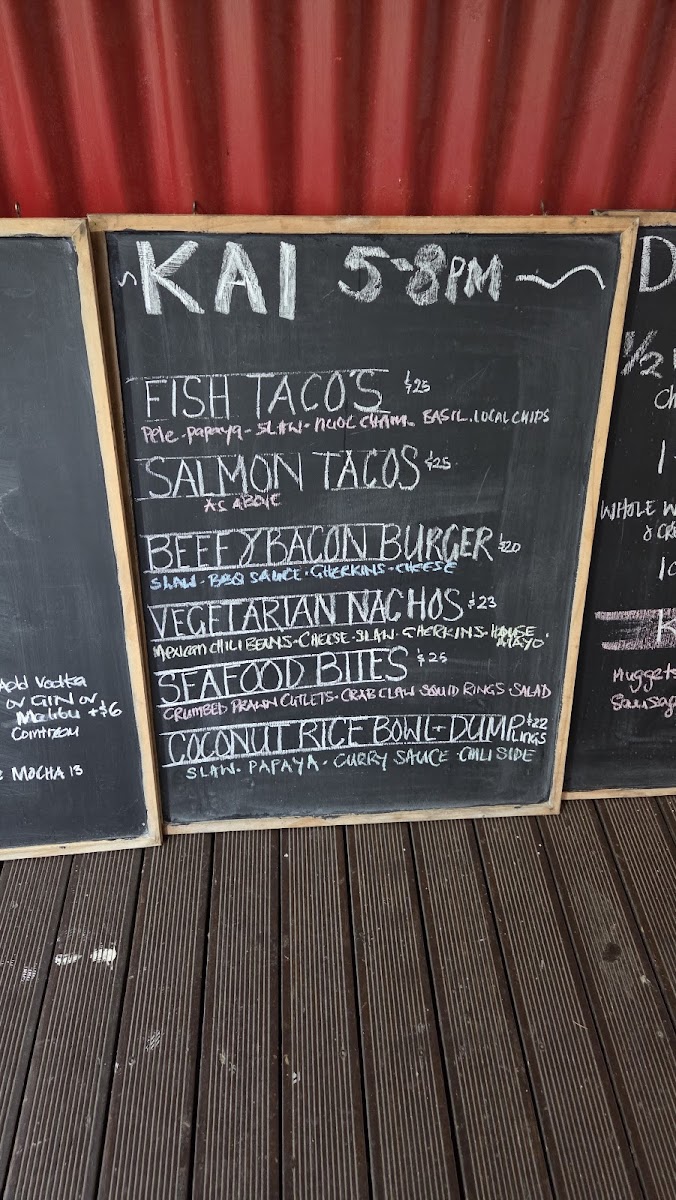 KAI 5-8PM
FISH TACO'S $25
Pele - papaya - SLAW - NUOC CHAM - BASIL . LOCAL CHIPS
SALMON TACOS $25
AS ABOVE
BEEF & BACON BURGER $20
SLAW - BBQ SAUCE - GHERKINS - CHEESE
VEGETARIAN NACHOS $23
MEXICAN CHILI BEANS - CHEESE - SLAW - GHERKINS - HOUSE
MAYO
SEAFOOD BITES $25
CRUMBED PRAWN CUTLETS - CRAB CLAW SQUID RINGS SALAD
COCONUT RICE BOWL + DUMPLINGS $22
SLAW - PAPAYA - CURRY SAUCE - CHILI SIDE
Add Vodka
or GIN or
Malibu +$6
MOCHA 13
D
1/2
WHOLE W
& CRE
K
Nuggets
Sausag